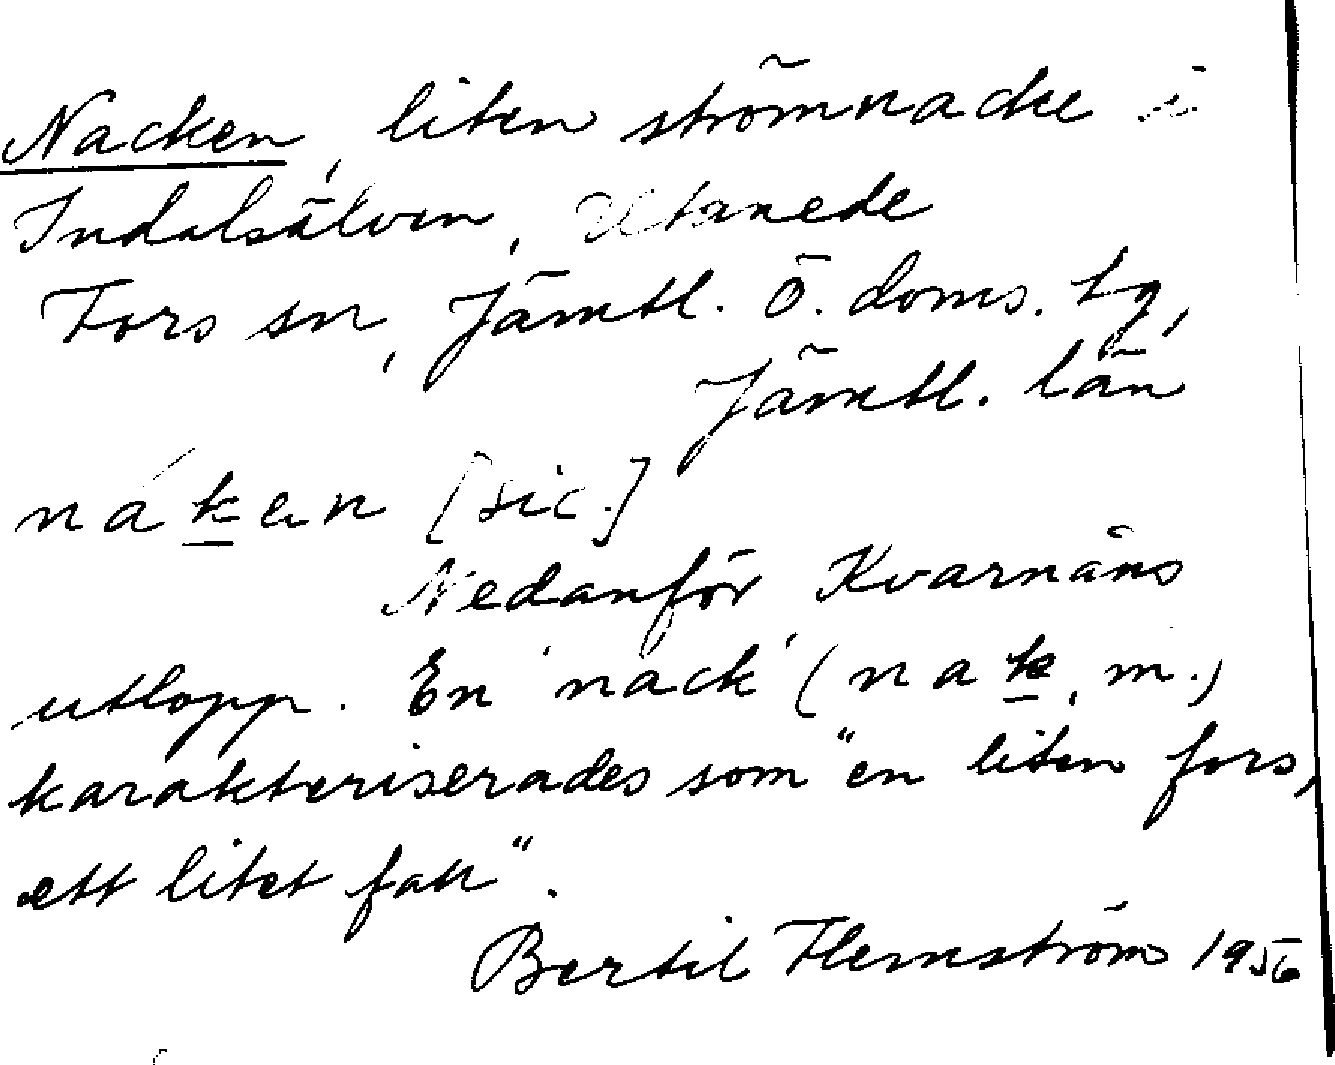 Nacken, liten strömnacke i
Indalsälven, Utanede
Fors sn, Jämtl. ö. doms. tg,
Jämtl. län
náken [sic.]
Nedanför Kvarnåns
utlopp. En 'nack' (nak, m.)
karakteriserades som "en liten fors,
ett litet fall".
Bertil Flemström 1956